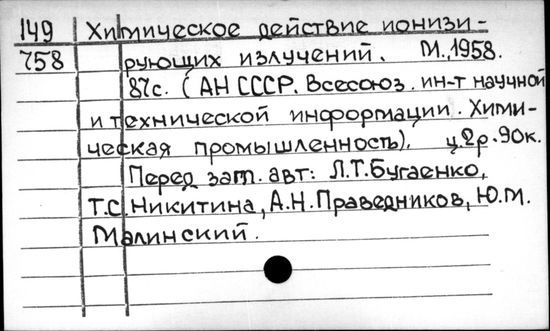 149 Химическое действие ионизи-
758 рующих излучений. М., 1958.
87с. (АН СССР. Всесоюз. ин-т научной
и технической информации. Хими-
ческая промышленность). ц.2р.90к.
Перед загл. авт: Л.Т.Бугаенко,
Т.С.Никитина, А.Н.Праведников, Ю.М.
Малинский.